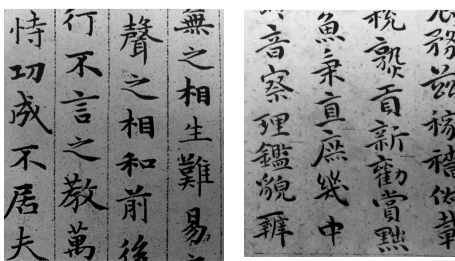 無之相生難易之
聲之相和前後
行不言之教萬
恃功成不居夫
務茲稼穡俶載
稅熟貢新勸賞黜
魚秉直庶幾中
音察理鑑貌辨